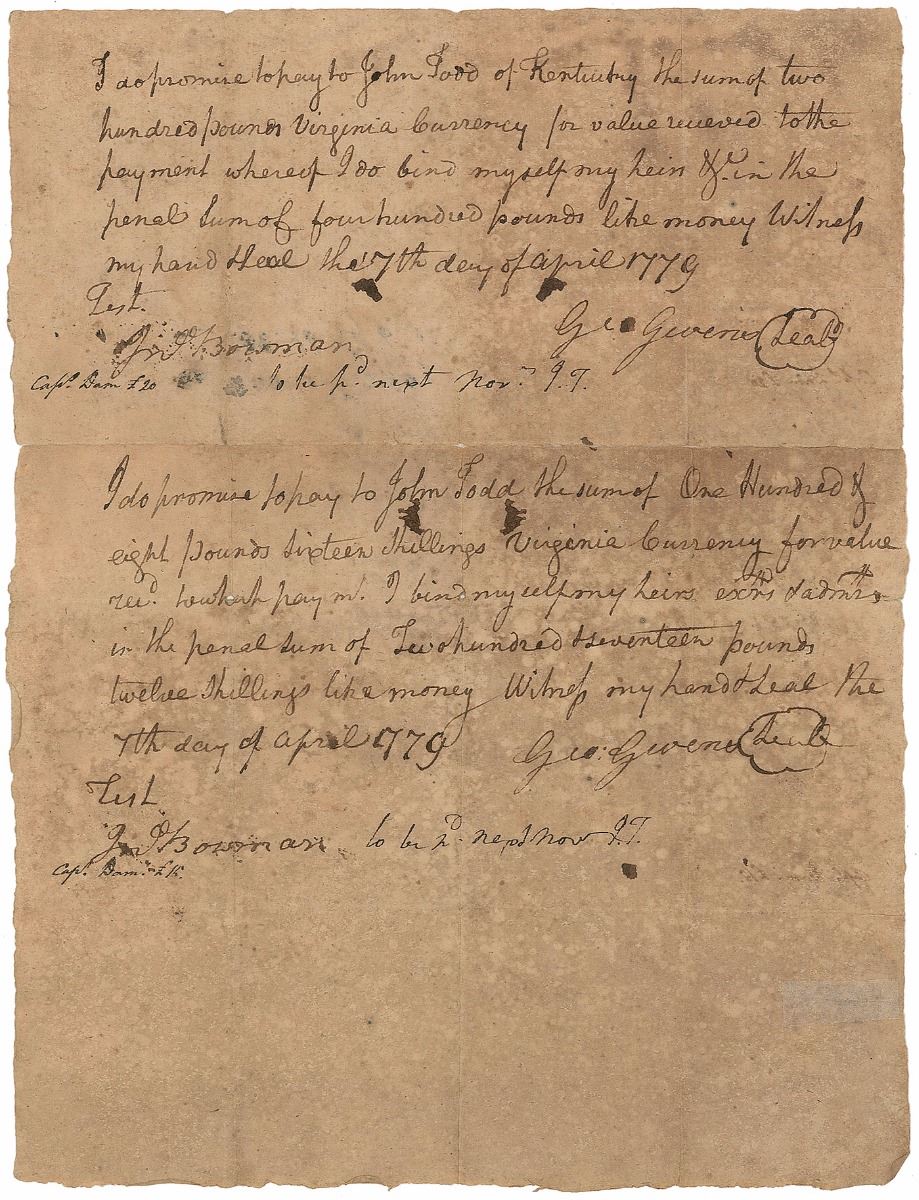 I do promise to pay to John Todd of Kentuckey the sum of two
hundred pounds Virginia Currency for value recieved to the
payment whereof I do bind myself my heirs &c. in the
penal Sum of four hundred pounds like money Witness
my hand & Seal the 7th day of April 1779
Test.
Geo Givens Seal
Jno Bowman
Capt. Dam. £20 to be pd. next Novr. J.T.
I do promise to pay to John Todd the sum of One Hundred &
eight pounds Sixteen Shillings Virginia Currency for value
recd. to which paymt. I bind myself my heirs exrs & admrs
in the penal sum of Two hundred & seventeen pounds
twelve Shillings like money Witness my hand & Seal the
7th day of April 1779 Geo. Givens Seal
Test
Jno Bowman to be pd. next Novr J.T.
Capt. Dam.